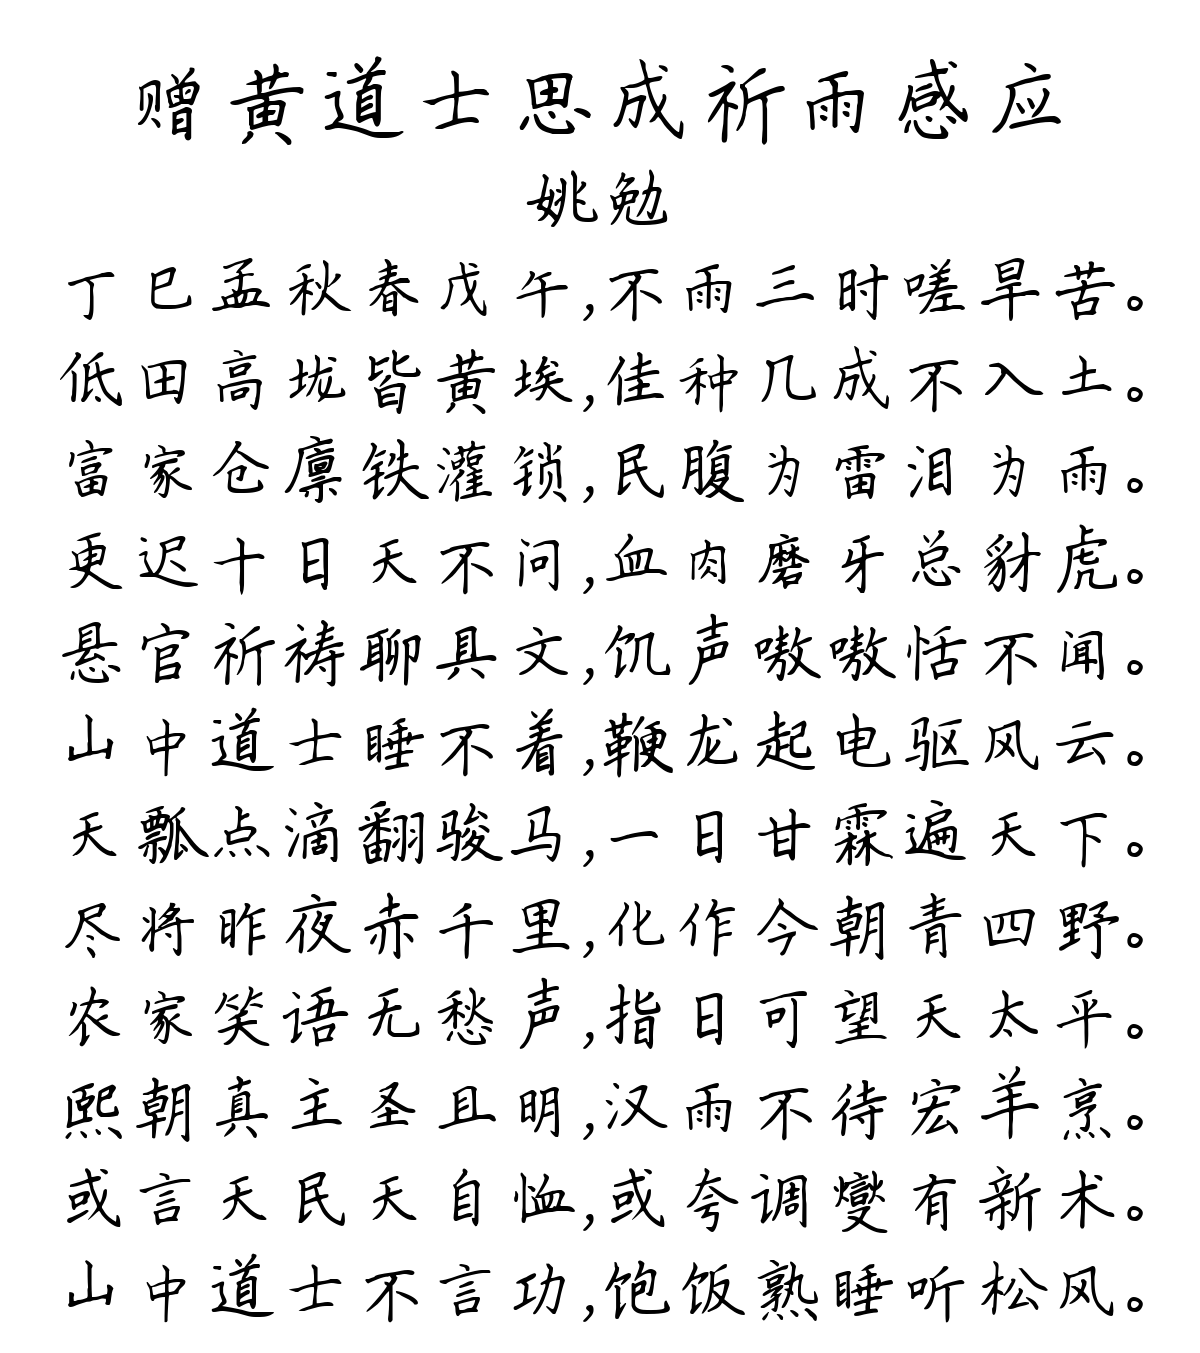 赠黄道士思成祈雨感应
姚勉
丁巳孟秋春戊午,不雨三时嗟旱苦。
低田高垅皆黄埃,佳种几成不入土。
富家仓廪铁灌锁,民腹为雷泪为雨。
更迟十日天不问,血肉磨牙总豺虎。
悬官祈祷聊具文,饥声嗷嗷恬不闻。
山中道士睡不着,鞭龙起电驱风云。
天瓢点滴翻骏马,一日甘霖遍天下。
尽将昨夜赤千里,化作今朝青四野。
农家笑语无愁声,指日可望天太平。
熙朝真主圣且明,汉雨不待宏羊烹。
或言天民天自恤,或夸调燮有新术。
山中道士不言功,饱饭熟睡听松风。